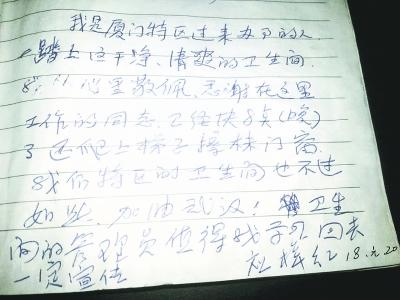 我是厦门特区过来办事的人
踏上这干净、清爽的卫生间
心里敬佩、感谢在这里
工作的同志.已经快8点(晚)
了还爬上梯子擦门窗.
我们特区的卫生间也不过
如此、加油武汉!卫生
间的管理员值得我学习回去
一定宣传 红 18.元.20